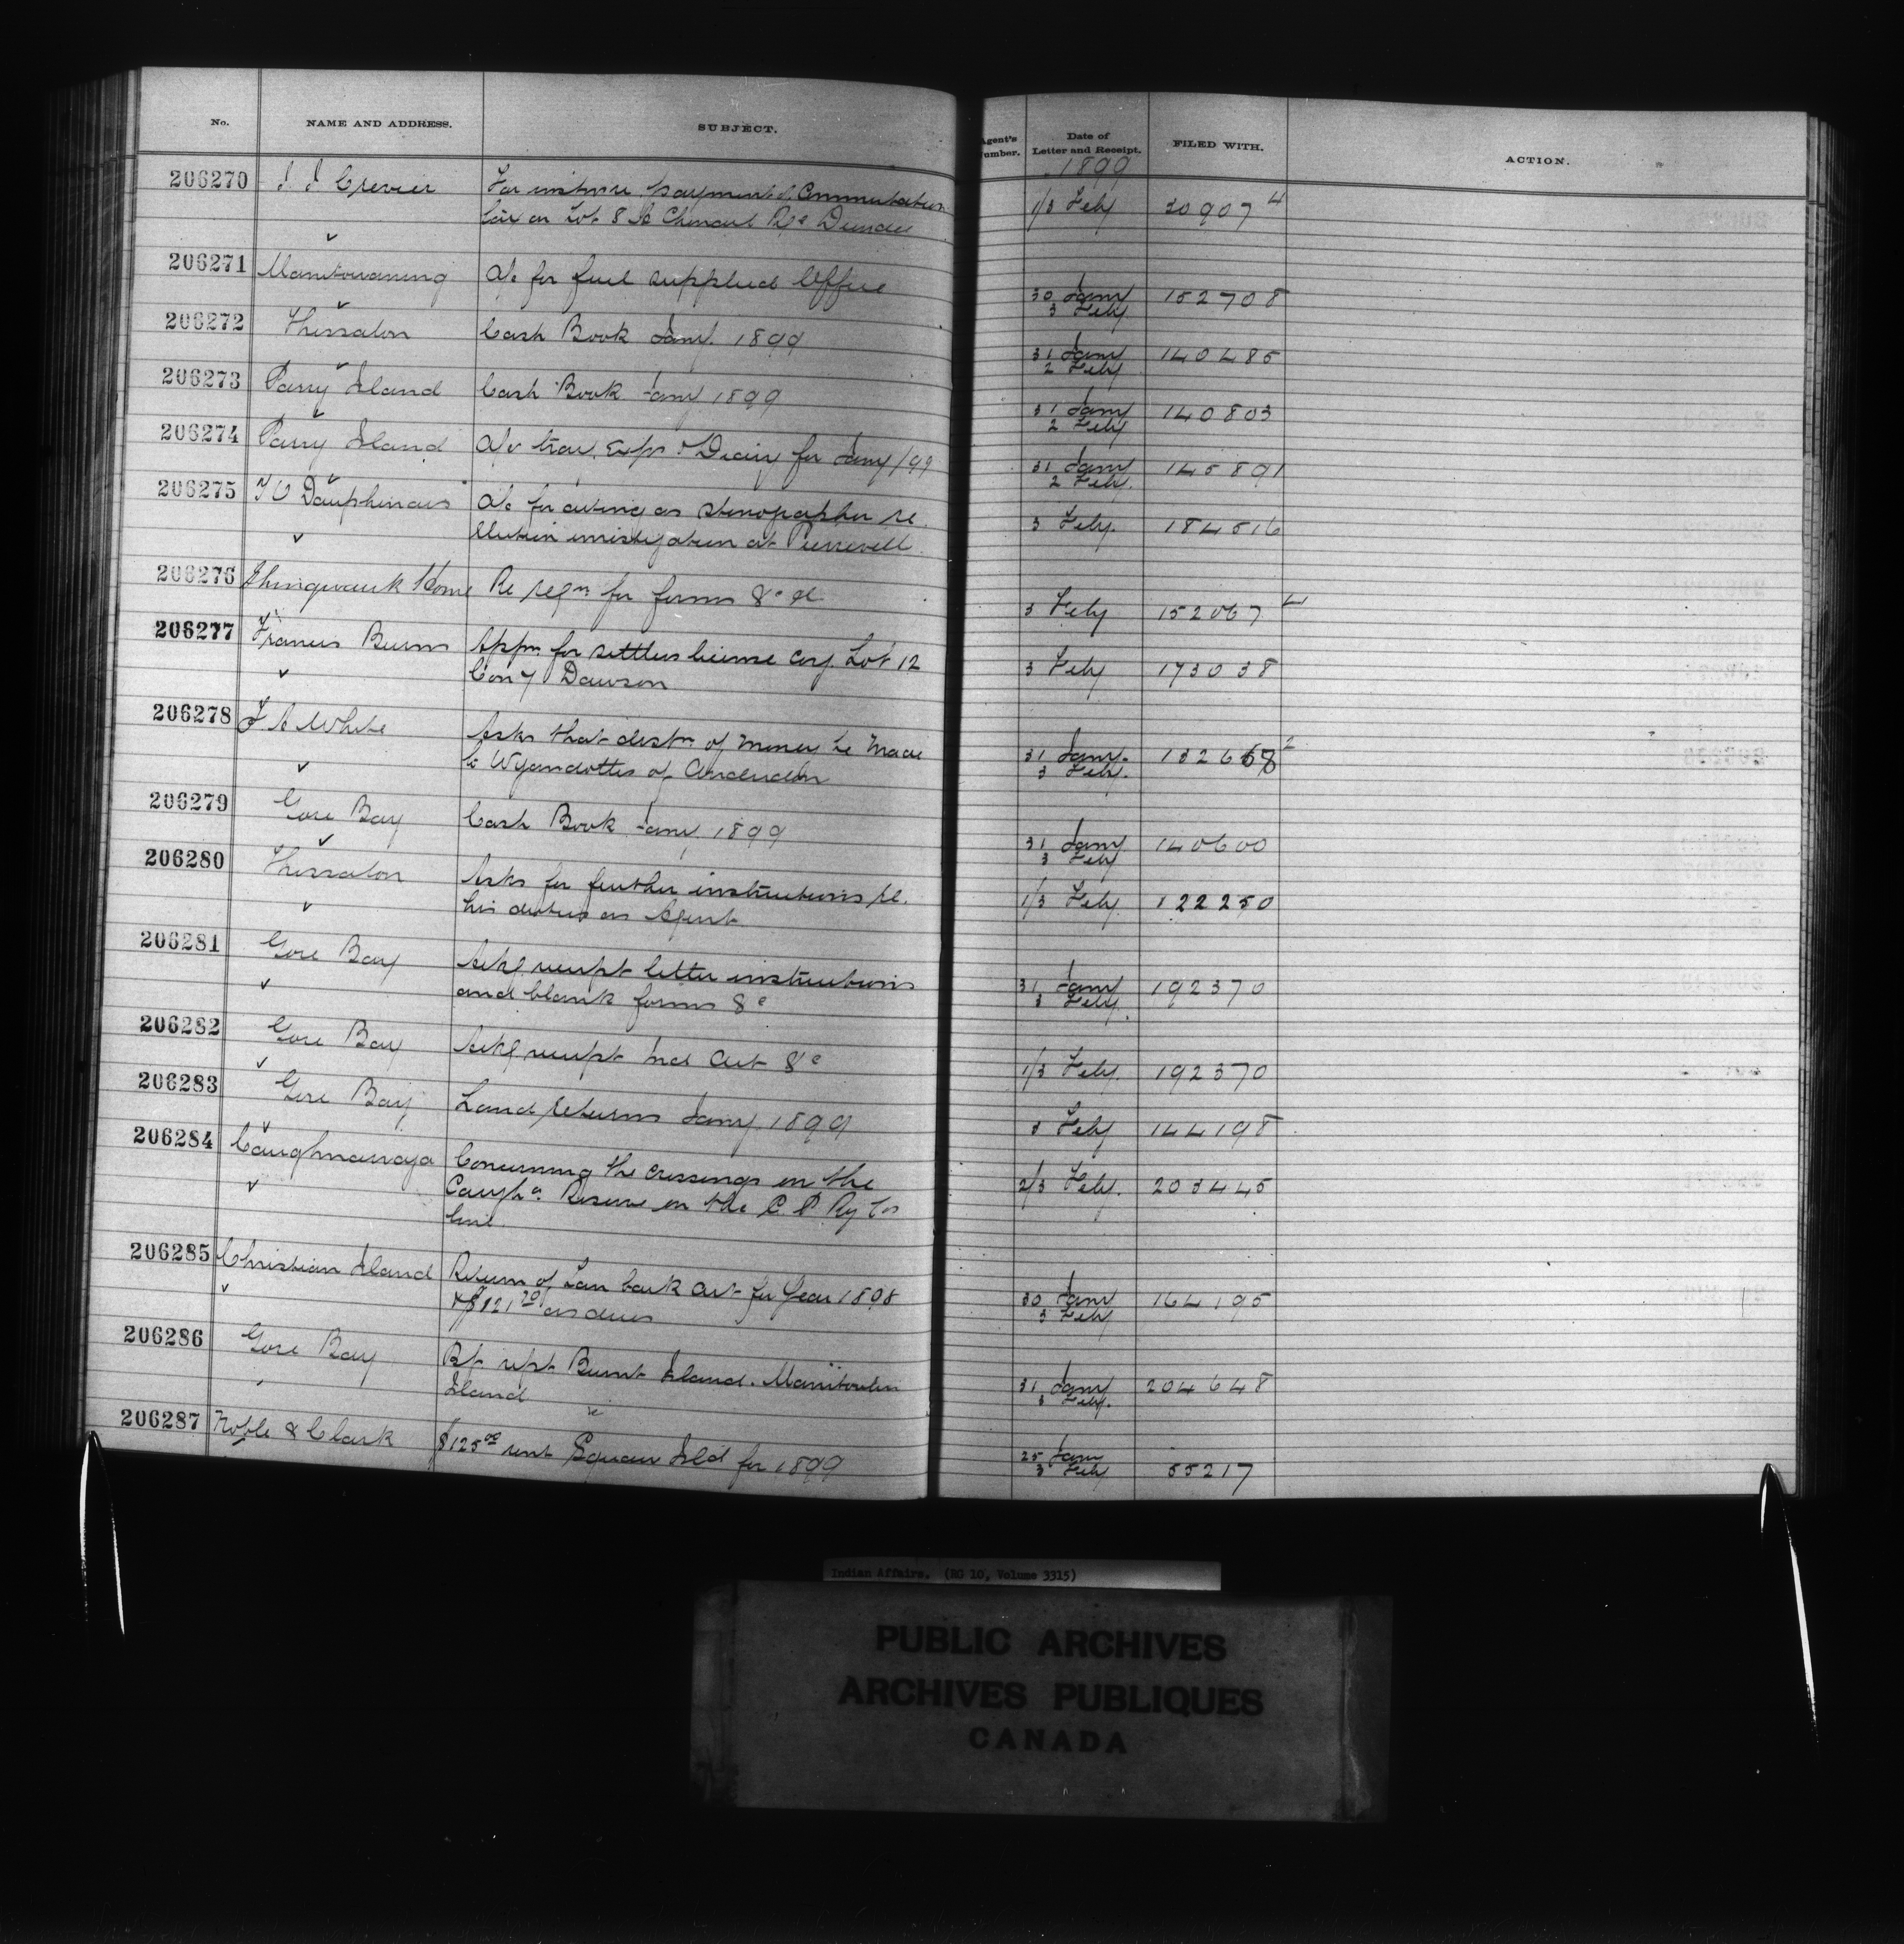 No. NAME AND ADDRESS. SUBJECT. Agent's Number. Date of Letter and Receipt. FILED WITH. ACTION.
1899
206270 J J Crevier For instrns re payment of Commutation 1/3 Feby 30907 4
on Lot 8 Re Dundee
206271 Manitowaning a/c for fuel supplied Office 30 Jany 152708
3 Feby
206272 Thessalon Cash Book Jany. 1899 31 Jany 140485
2 Feby
206273 Parry Island Cash Book Jany 1899 31 Jany 140803
2 Feby
206274 Parry Island a/c trav. Exps & Diary for Jany/99 31 Jany 145891
2 Feby.
206275 Dauphinais a/c for acting as stenographer re. 3 Feby. 184516
Election investigation at Pierreville
206276 Shingwauk Home Re reqn for forms &c &c 3 Feby 152067 4
206277 Francis Burns Appn for settlers license cov Lot 12 3 Feby 173038
Con 7 Dawson
206278 White Asks that distn of money be made 31 Jany. 132658 2
to Wyandottes of Anderdon 3 Feby.
206279 Gore Bay Cash Book Jany 1899 31 Jany 140600
3 Feby
206280 Thessalon Asks for further instructions re. 1/3 Feby 122250
his duties as Agent
206281 Gore Bay Ackg receipt letter instructions 31 Jany 192370
and blank forms &c 3 Feby.
206282 Gore Bay Ackg receipt Ind Act &c 1/3 Feby. 192370
206283 Gore Bay Land returns Jany 1899 3 Feby 144198
206284 Caughnawaga Concerning the crossings on the 2/3 Feby. 203445
Caugha. Reserve on the C. P Ry Cos
line
206285 Christian Island Return of Tan bark cut for Year 1898 30 Jany 164195
& $121 20 as dues 3 Feby
206286 Gore Bay Burnt Island. Manitoulin 31 Jany 204648
Island 3 Feby.
206287 Noble & Clark $125 00 rent Squaw Isld for 1899 25 Jany 55217
3 Feb
Indian Affairs. (RG 10, Volume 3315)
PUBLIC ARCHIVES
ARCHIVES PUBLIQUES
CANADA